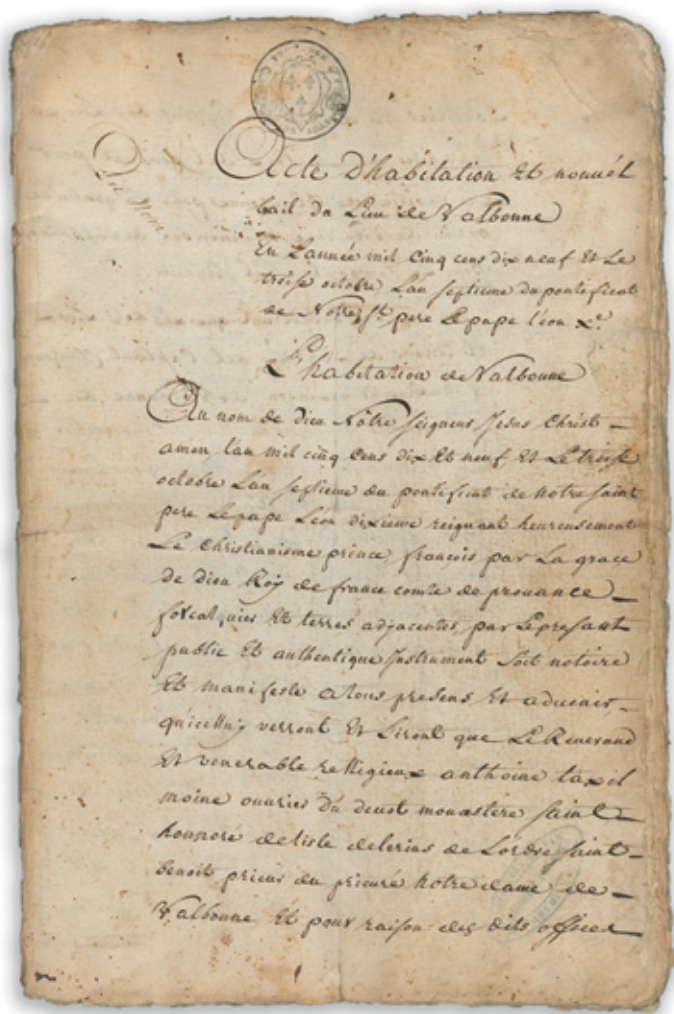 Acte D'habitation Et nouvél
bail du Lieu de Valbonne
En L'année mil Cinq cens dix neuf Et Le
treise octobre Lan septieme du pontificat
de Notre St. pere Le pape léon Xe.
L'habitation de Valbonne
Au nom de dieu Nôtre seigneur Jesus Christ
amen l'an mil cinq cens dix Et neuf Et Le treise
octobre Lan septieme du pontificat de notre saint
pere Le pape Léon dixieme reignant heureusement
Le Christianisme prince francois par La grace
de dieu Roy de france comte de prouance
forcalquier Et terres adjacentes, par Le presant
public Et authentique Instrument soit notoire
Et manifeste a tous presens Et aduenir
qu'icelluy verront Et Liront que Le Reuerand
Et venerable relligieux anthoine taxil
moine ouurier du deuot monastére saint
honnoré de liste de lerins de Lordre saint
benoit prieur du prieuré notre dame de
Valbonne Et pour raison des dits offices